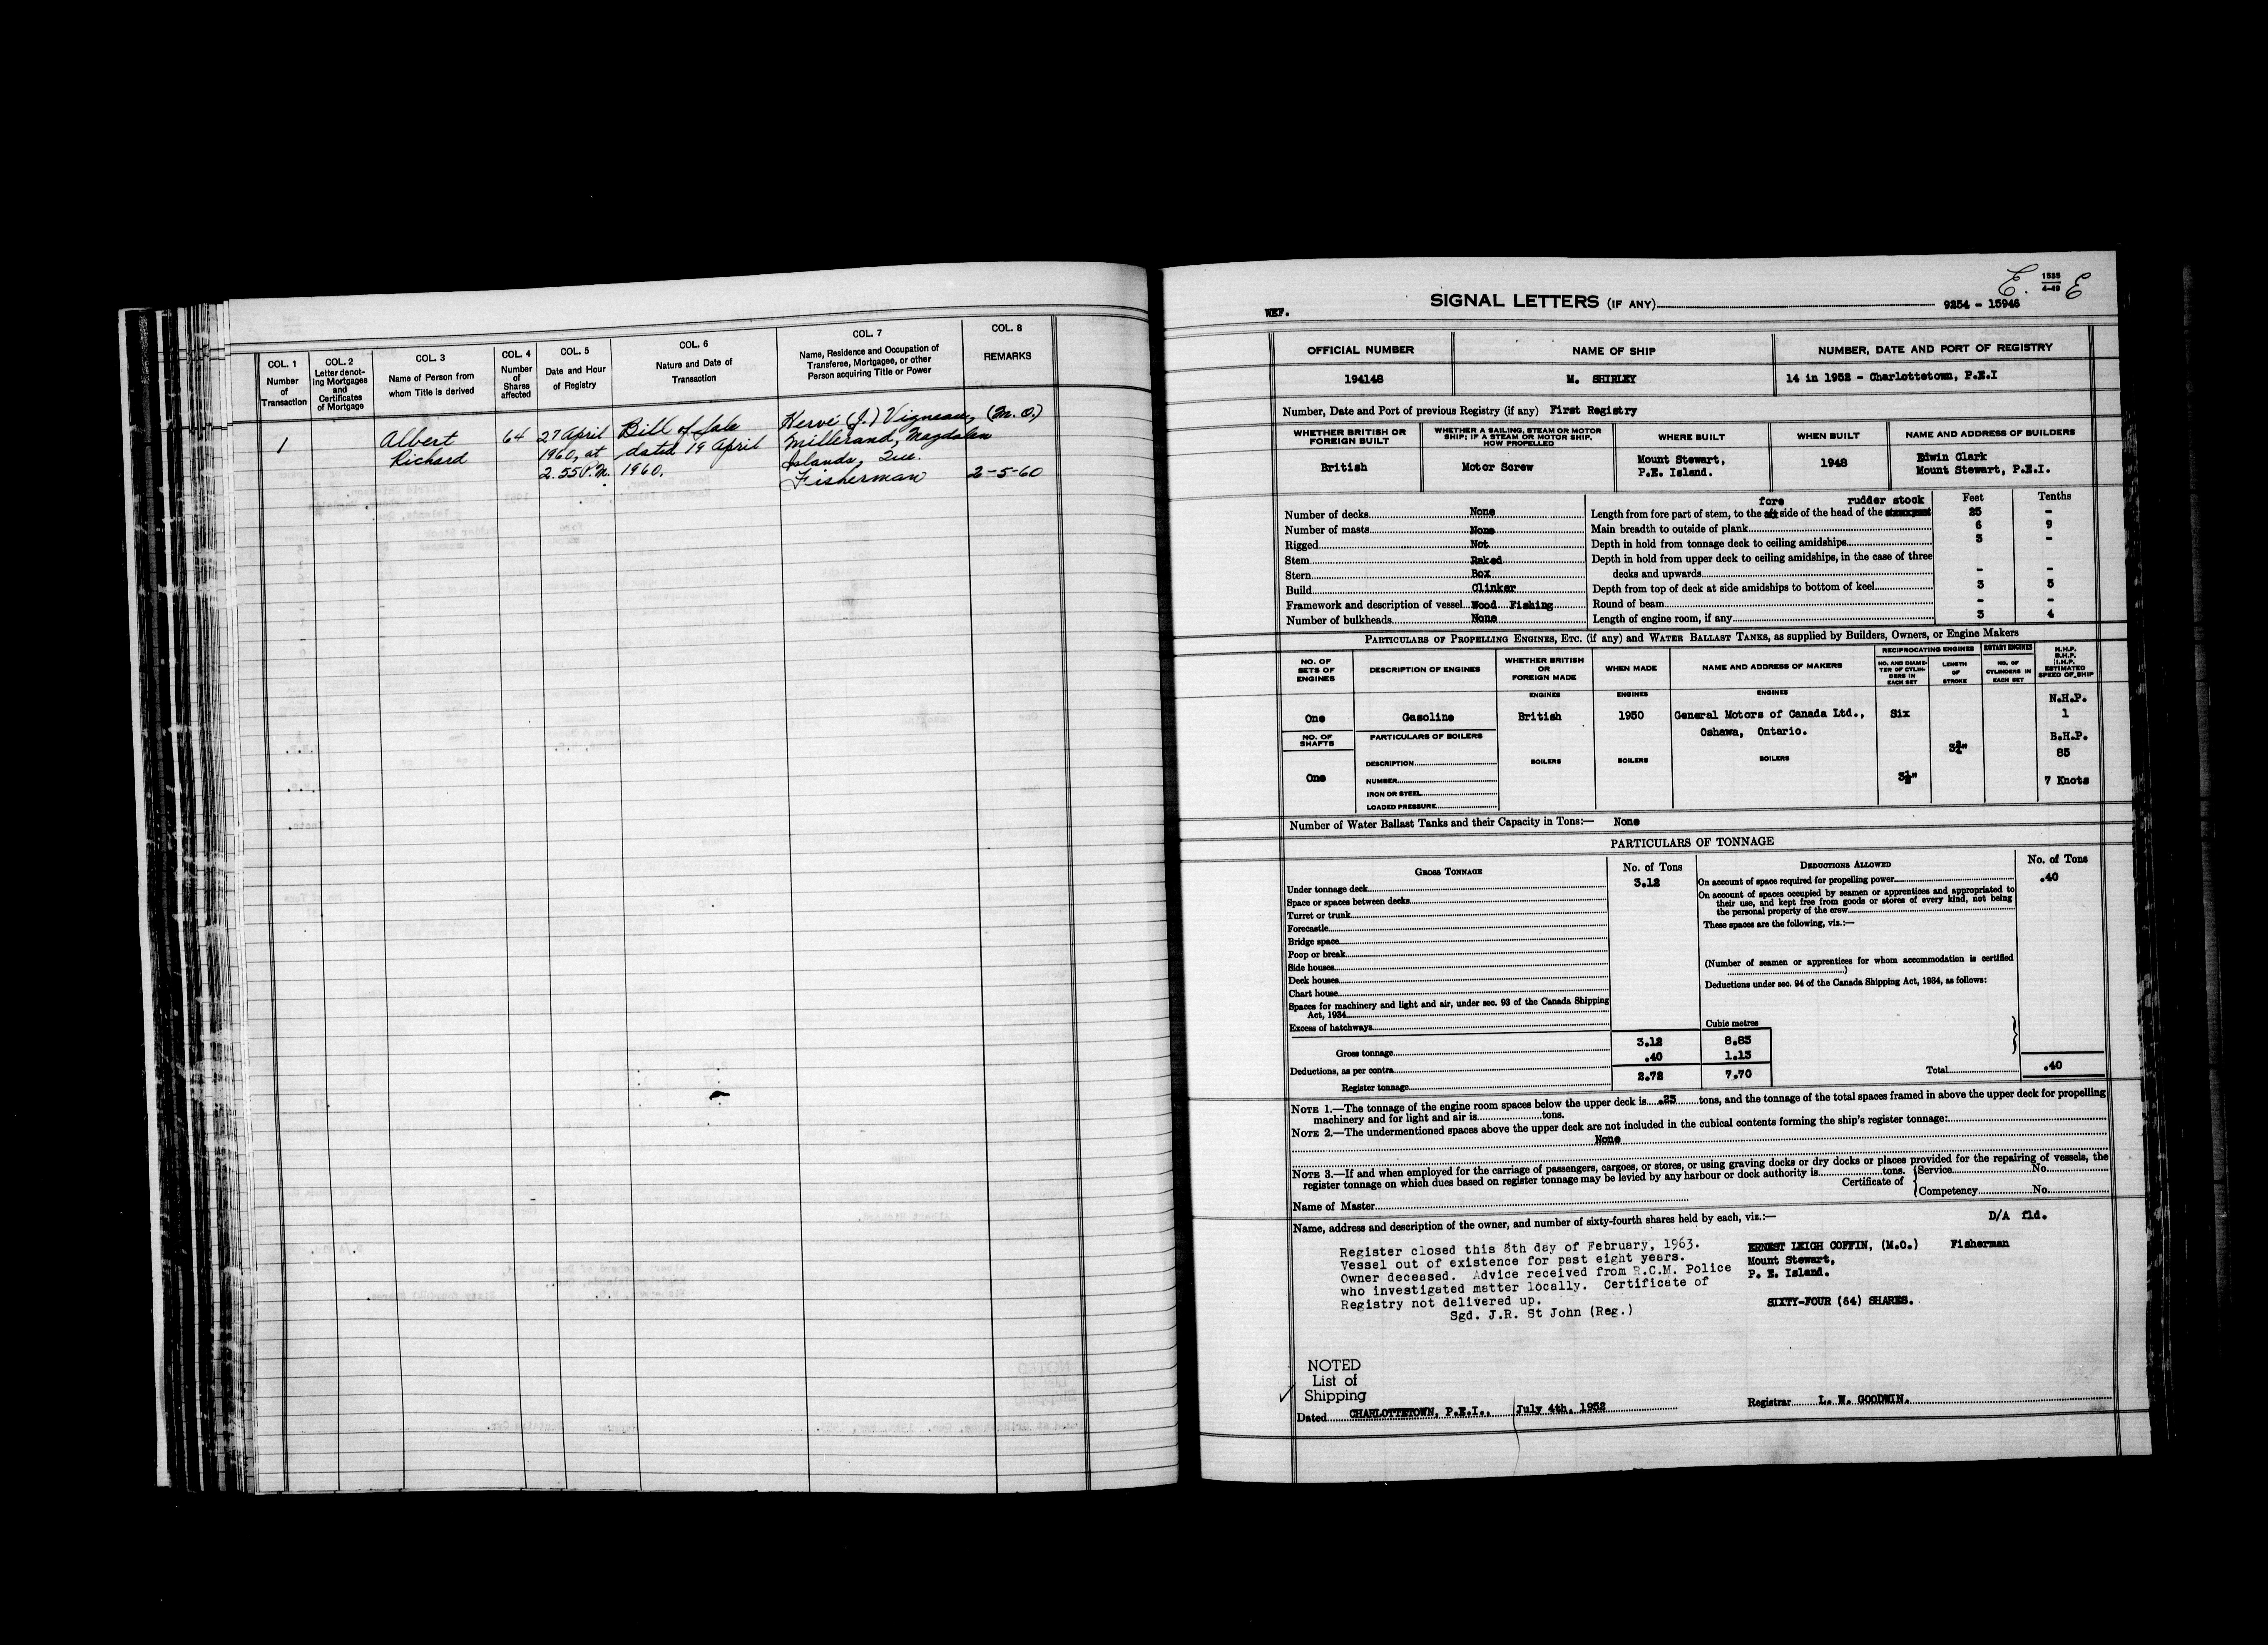 COL. 1
Number
of
Transaction
COL. 2
Letter denot-
ing Mortgages
and
Certificates
of Mortgage
COL. 3
Name of Person from
whom Title is derived
COL. 4
Number
of
Shares
affected
COL. 5
Date and Hour
of Registry
COL. 6
Nature and Date of
Transaction
COL. 7
Name, Residence and Occupation of
Transferee, Mortgagee, or other
Person acquiring Title or Power
COL. 8
REMARKS
1
Albert
Richard
64
27 April
1960, at
2.55 P.M.
Bill of Sale
dated 19 April
1960.
Hervé (J.) Vigneau, (M.O.)
Millerand, Magdalen
Islands, Que.
Fisherman
2-5-60
E. 1535 E
4-49
SIGNAL LETTERS (IF ANY)
9254 - 15946
WEF.
OFFICIAL NUMBER
NAME OF SHIP
NUMBER, DATE AND PORT OF REGISTRY
194148
M. SHIRLEY
14 in 1952 - Charlottetown, P.E.I
Number, Date and Port of previous Registry (if any) First Registry
WHETHER BRITISH OR
FOREIGN BUILT
WHETHER A SAILING, STEAM OR MOTOR
SHIP; IF A STEAM OR MOTOR SHIP,
HOW PROPELLED
WHERE BUILT
WHEN BUILT
NAME AND ADDRESS OF BUILDERS
British
Motor Screw
Mount Stewart,
P.E. Island.
1948
Edwin Clark
Mount Stewart, P.E.I.
Number of decks None
Number of masts None
Rigged Not
Stem Raked
Stern Box
Build Clinker
Framework and description of vessel Wood Fishing
Number of bulkheads None
Feet Tenths
fore rudder stock
Length from fore part of stem, to the aft side of the head of the 25 -
Main breadth to outside of plank 6 9
Depth in hold from tonnage deck to ceiling amidships 3 -
Depth in hold from upper deck to ceiling amidships, in the case of three
decks and upwards - -
Depth from top of deck at side amidships to bottom of keel 3 5
Round of beam - -
Length of engine room, if any 3 4
PARTICULARS OF PROPELLING ENGINES, ETC. (if any) and WATER BALLAST TANKS, as supplied by Builders, Owners, or Engine Makers
NO. OF
SETS OF
ENGINES
DESCRIPTION OF ENGINES
WHETHER BRITISH
OR
FOREIGN MADE
WHEN MADE
NAME AND ADDRESS OF MAKERS
RECIPROCATING ENGINES
NO. AND DIAME-
TER OF CYLIN-
DERS IN
EACH SET
LENGTH
OF
STROKE
ROTARY ENGINES
NO. OF
CYLINDERS IN
EACH SET
N.H.P.
B.H.P.
I.H.P.
ESTIMATED
SPEED OF SHIP
ENGINES ENGINES ENGINES
One
Gasoline
British
1950
General Motors of Canada Ltd.,
Oshawa, Ontario.
Six
N.H.P.
1
B.H.P.
85
7 Knots
NO. OF
SHAFTS
One
PARTICULARS OF BOILERS
DESCRIPTION
NUMBER
IRON OR STEEL
LOADED PRESSURE
BOILERS BOILERS BOILERS
3½"
3¾"
Number of Water Ballast Tanks and their Capacity in Tons:— None
PARTICULARS OF TONNAGE
GROSS TONNAGE
No. of Tons
Under tonnage deck 3.12
Space or spaces between decks
Turret or trunk
Forecastle
Bridge space
Poop or break
Side houses
Deck houses
Chart house
Spaces for machinery and light and air, under sec. 93 of the Canada Shipping
Act, 1934
Excess of hatchways
Cubic metres
Gross tonnage 3.12 8.83
Deductions, as per contra .40 1.13
Register tonnage 2.72 7.70
DEDUCTIONS ALLOWED
No. of Tons
On account of space required for propelling power .40
On account of spaces occupied by seamen or apprentices and appropriated to
their use, and kept free from goods or stores of every kind, not being
the personal property of the crew
These spaces are the following, viz.:—
(Number of seamen or apprentices for whom accommodation is certified
)
Deductions under sec. 94 of the Canada Shipping Act, 1934, as follows:
Total .40
NOTE 1.—The tonnage of the engine room spaces below the upper deck is .23 tons, and the tonnage of the total spaces framed in above the upper deck for propelling
machinery and for light and air is tons.
NOTE 2.—The undermentioned spaces above the upper deck are not included in the cubical contents forming the ship's register tonnage:
None
NOTE 3.—If and when employed for the carriage of passengers, cargoes, or stores, or using graving docks or dry docks or places provided for the repairing of vessels, the
register tonnage on which dues based on register tonnage may be levied by any harbour or dock authority is tons.
Certificate of
Service No.
Competency No.
Name of Master
Name, address and description of the owner, and number of sixty-fourth shares held by each, viz.:—
D/A fld.
Register closed this 8th day of February, 1963.
Vessel out of existence for past eight years.
Owner deceased. Advice received from R.C.M. Police
who investigated matter locally. Certificate of
Registry not delivered up.
Sgd. J.R. St John (Reg.)
ERNEST LEIGH COFFIN, (M.O.) Fisherman
Mount Stewart,
P. E. Island.
SIXTY-FOUR (64) SHARES.
NOTED
List of
Shipping
Dated CHARLOTTETOWN, P.E.I., July 4th, 1952
Registrar L. W. GOODWIN.